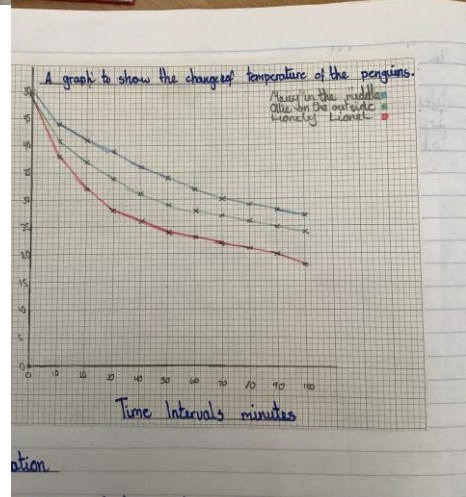 A graph to show the change of temperature of the penguins.
Maisy in the middle
Ollie on the outside
Lionely Lionel
50
45
40
35
30
25
20
15
10
5
0
0 10 20 30 40 50 60 70 80 90 100
Time Intervals minutes
ation